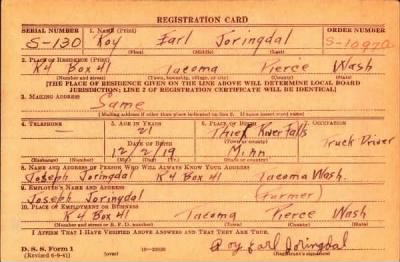 REGISTRATION CARD
SERIAL NUMBER 1. NAME (Print) ORDER NUMBER
S-130 Roy Earl Joringdal S-10972
(First) (Middle) (Last)
2. PLACE OF RESIDENCE (Print)
R4 Box 41 Tacoma Pierce Wash
(Number and street) (Town, township, village, or city) (County) (State)
[THE PLACE OF RESIDENCE GIVEN ON THE LINE ABOVE WILL DETERMINE LOCAL BOARD
JURISDICTION; LINE 2 OF REGISTRATION CERTIFICATE WILL BE IDENTICAL]
3. MAILING ADDRESS
Same
[Mailing address if other than place indicated on line 2. If same insert word same]
4. TELEPHONE 5. AGE IN YEARS 6. PLACE OF BIRTH OCCUPATION
21 Thief River Falls
DATE OF BIRTH (Town or county) Truck Driver
12/2/19 Minn
(Exchange) (Number) (Mo.) (Day) (Yr.) (State or country)
8. NAME AND ADDRESS OF PERSON WHO WILL ALWAYS KNOW YOUR ADDRESS
Joseph Joringdal R4 Box 41 Tacoma Wash.
9. EMPLOYER'S NAME AND ADDRESS
Joseph Joringdal (Farmer)
10. PLACE OF EMPLOYMENT OR BUSINESS
R4 Box 41 Tacoma Pierce Wash
(Number and street or R. F. D. number) (Town) (County) (State)
I AFFIRM THAT I HAVE VERIFIED ABOVE ANSWERS AND THAT THEY ARE TRUE.
D. S. S. Form 1
(Revised 6-9-41) (over) Roy Earl Joringdal
(Registrant's signature)